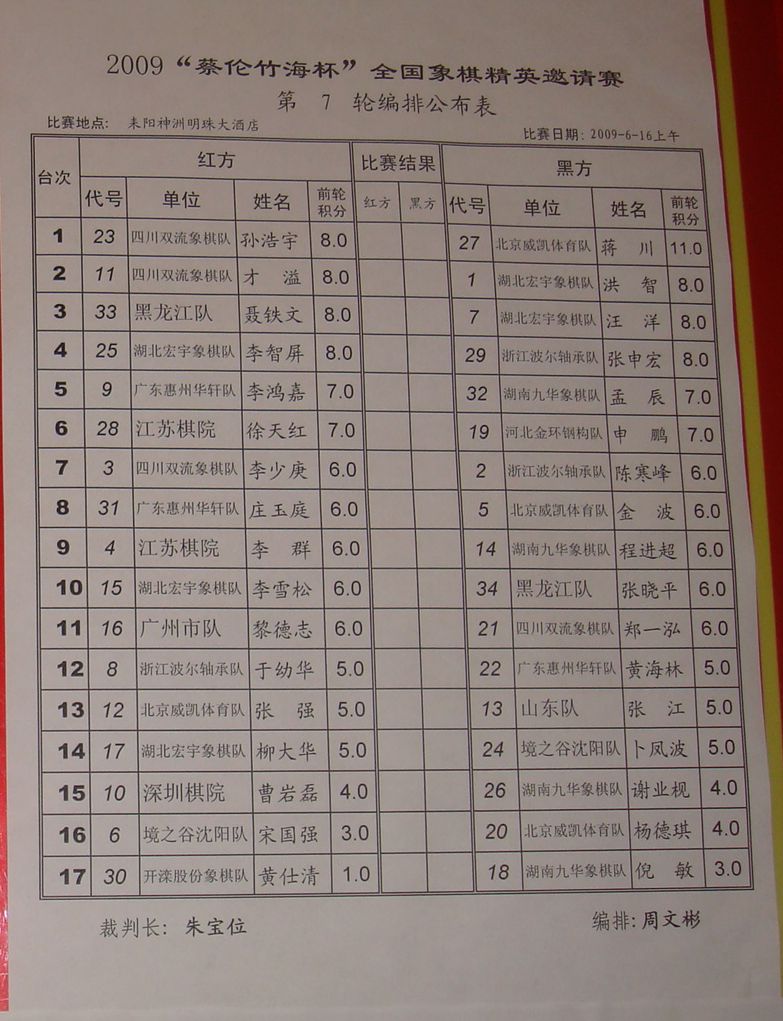 2009“蔡伦竹海杯”全国象棋精英邀请赛
第 7 轮编排公布表
比赛地点: 耒阳神洲明珠大酒店 比赛日期: 2009-6-16上午
台次 红方 比赛结果 黑方
代号 单位 姓名 前轮积分 红方 黑方 代号 单位 姓名 前轮积分
1 23 四川双流象棋队 孙浩宇 8.0 27 北京威凯体育队 蒋 川 11.0
2 11 四川双流象棋队 才 溢 8.0 1 湖北宏宇象棋队 洪 智 8.0
3 33 黑龙江队 聂铁文 8.0 7 湖北宏宇象棋队 汪 洋 8.0
4 25 湖北宏宇象棋队 李智屏 8.0 29 浙江波尔轴承队 张申宏 8.0
5 9 广东惠州华轩队 李鸿嘉 7.0 32 湖南九华象棋队 孟 辰 7.0
6 28 江苏棋院 徐天红 7.0 19 河北金环钢构队 申 鹏 7.0
7 3 四川双流象棋队 李少庚 6.0 2 浙江波尔轴承队 陈寒峰 6.0
8 31 广东惠州华轩队 庄玉庭 6.0 5 北京威凯体育队 金 波 6.0
9 4 江苏棋院 李 群 6.0 14 湖南九华象棋队 程进超 6.0
10 15 湖北宏宇象棋队 李雪松 6.0 34 黑龙江队 张晓平 6.0
11 16 广州市队 黎德志 6.0 21 四川双流象棋队 郑一泓 6.0
12 8 浙江波尔轴承队 于幼华 5.0 22 广东惠州华轩队 黄海林 5.0
13 12 北京威凯体育队 张 强 5.0 13 山东队 张 江 5.0
14 17 湖北宏宇象棋队 柳大华 5.0 24 境之谷沈阳队 卜凤波 5.0
15 10 深圳棋院 曹岩磊 4.0 26 湖南九华象棋队 谢业枧 4.0
16 6 境之谷沈阳队 宋国强 3.0 20 北京威凯体育队 杨德琪 4.0
17 30 开滦股份象棋队 黄仕清 1.0 18 湖南九华象棋队 倪 敏 3.0
裁判长: 朱宝位 编排: 周文彬